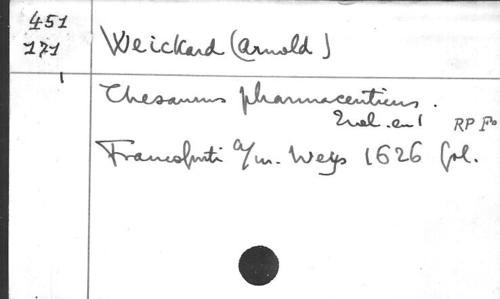 451
171
Weickard (Arnold)
Thesaurus pharmaceuticus.
RP Fo
Francofurti a/m. Weys 1626 fol.